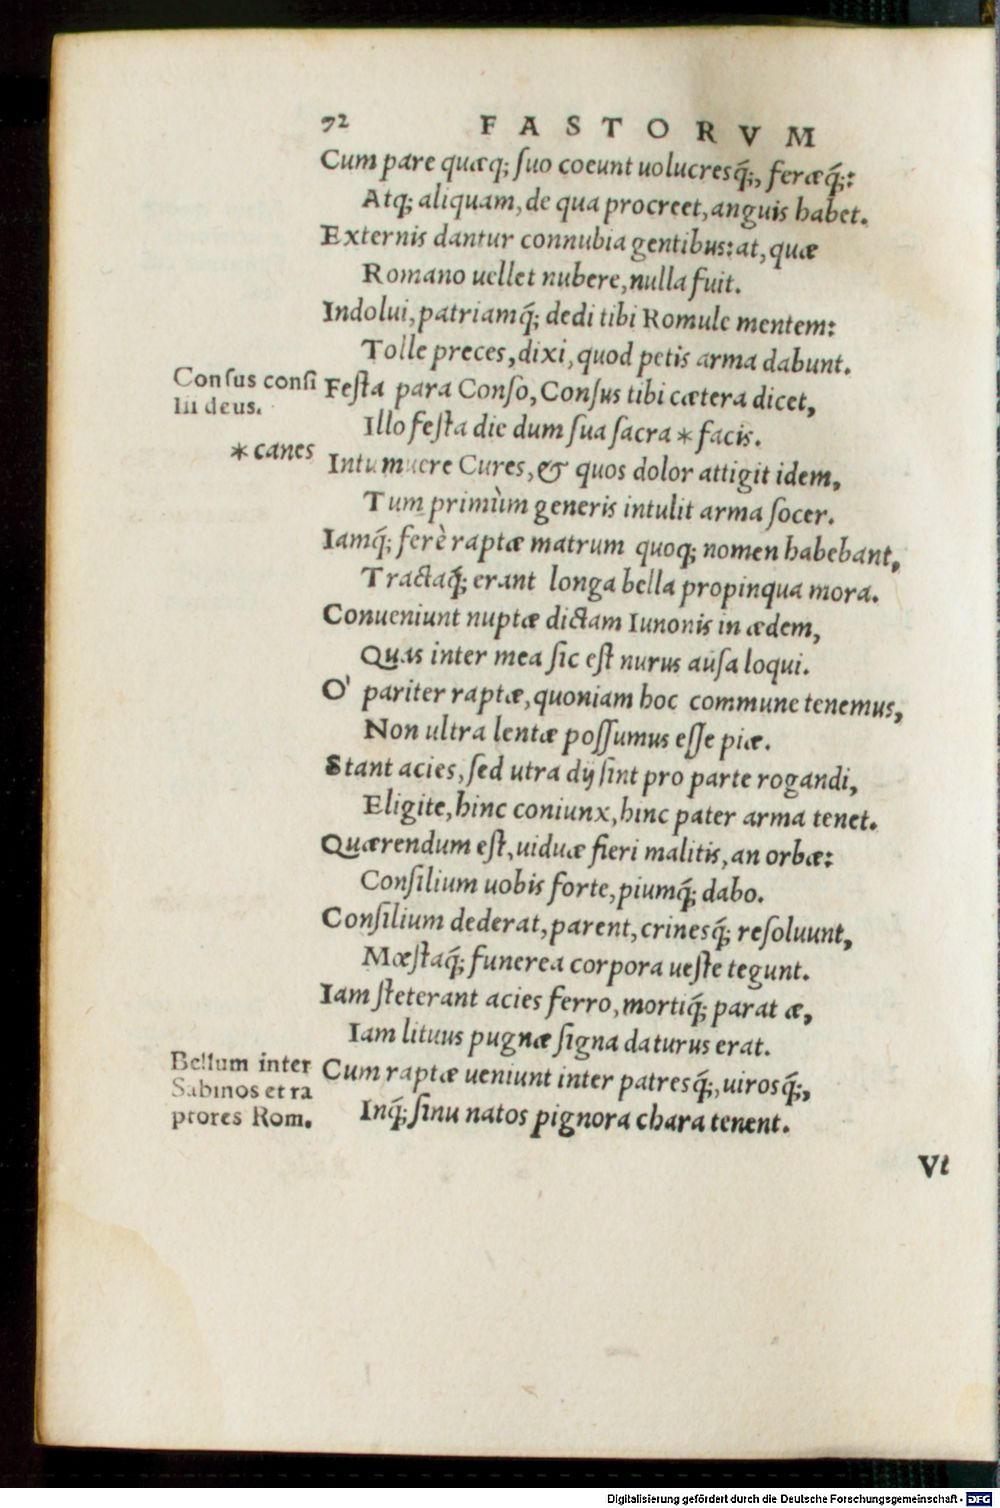 72 FASTORVM
Cum pare quæq; ſuo coeunt uolucresq́;, feræq́;:
Atq; aliquam, de qua procreet, anguis habet.
Externis dantur connubia gentibus: at, quæ
Romano uellet nubere, nulla fuit.
Indolui, patriamq́; dedi tibi Romule mentem:
Tolle preces, dixi, quod petis arma dabunt.
Conſus conſi
lii deus.
Feſta para Conſo, Conſus tibi cætera dicet,
Illo feſta die dum ſua ſacra * facis.
* canes
Intumuere Cures, & quos dolor attigit idem,
Tum primùm generis intulit arma ſocer.
Iamq́; ferè raptæ matrum quoq; nomen habebant,
Tractaq́; erant longa bella propinqua mora.
Conueniunt nuptæ dictam Iunonis in ædem,
Quas inter mea ſic eſt nurus auſa loqui.
O' pariter raptæ, quoniam hoc commune tenemus,
Non ultra lentæ poſſumus eſſe piæ.
Stant acies, ſed utra dij ſint pro parte rogandi,
Eligite, hinc coniunx, hinc pater arma tenet.
Quærendum eſt, uiduæ fieri malitis, an orbæ:
Conſilium uobis forte, piumq́; dabo.
Conſilium dederat, parent, crinesq́; reſoluunt,
Mœſtaq́; funerea corpora ueſte tegunt.
Iam ſteterant acies ferro, mortiq́; parat æ,
Iam lituus pugnæ ſigna daturus erat.
Bellum inter
Sabinos et ra
ptores Rom.
Cum raptæ ueniunt inter patresq́;, uirosq́;,
Inq́; ſinu natos pignora chara tenent.
Vt
Digitalisierung gefördert durch die Deutsche Forschungsgemeinschaft - DFG